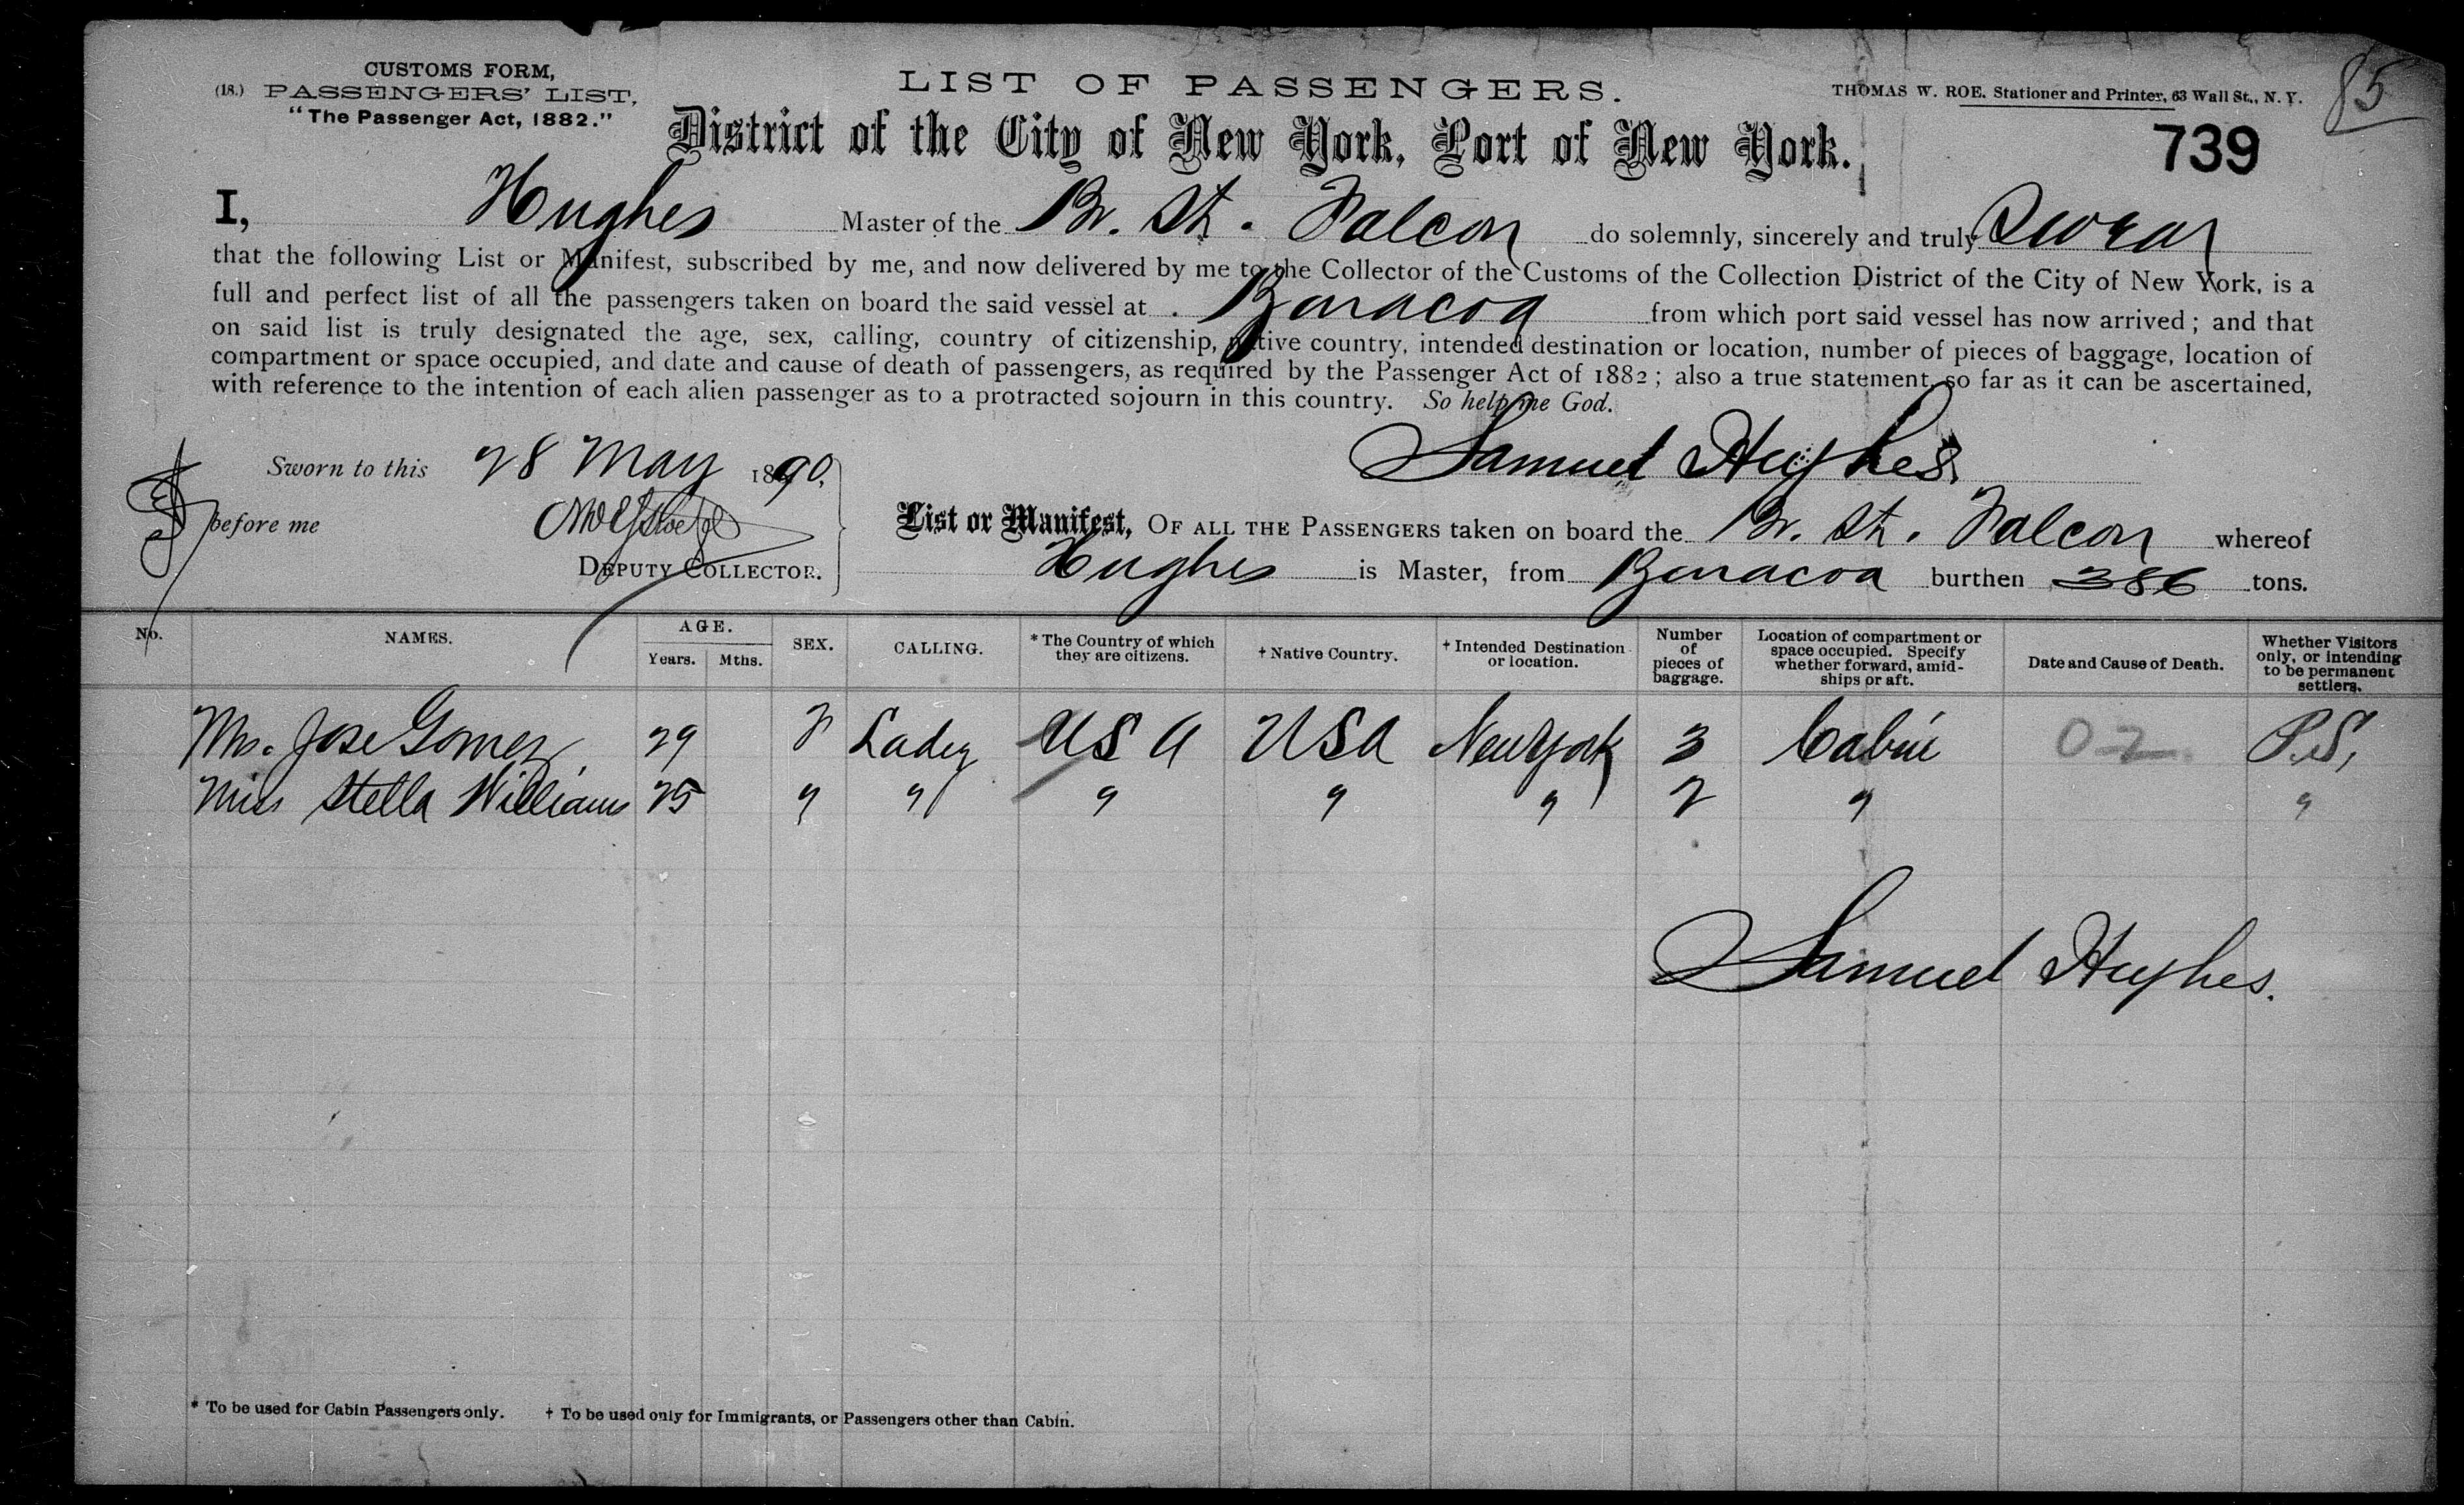 CUSTOMS FORM,
(18.) PASSENGERS' LIST,
"The Passenger Act, 1882."
LIST OF PASSENGERS.
THOMAS W. ROE. Stationer and Printer, 63 Wall St., N. Y.
85
District of the City of New York, Port of New York.
739
I, Hughes Master of the Br. St. Falcon do solemnly, sincerely and truly Swear
that the following List or Manifest, subscribed by me, and now delivered by me to the Collector of the Customs of the Collection District of the City of New York, is a
full and perfect list of all the passengers taken on board the said vessel at Baracoa from which port said vessel has now arrived; and that
on said list is truly designated the age, sex, calling, country of citizenship, native country, intended destination or location, number of pieces of baggage, location of
compartment or space occupied, and date and cause of death of passengers, as required by the Passenger Act of 1882; also a true statement, so far as it can be ascertained,
with reference to the intention of each alien passenger as to a protracted sojourn in this country. So help me God.
Samuel Hughes.
Sworn to this 28 May 1890,
before me
DEPUTY COLLECTOR.
List or Manifest, OF ALL THE PASSENGERS taken on board the Br. St. Falcon whereof
Hughes is Master, from Baracoa burthen 386 tons.
No. NAMES. AGE. Years. Mths. SEX. CALLING. * The Country of which they are citizens. † Native Country. † Intended Destination or location. Number of pieces of baggage. Location of compartment or space occupied. Specify whether forward, amidships or aft. Date and Cause of Death. Whether Visitors only, or intending to be permanent settlers.
Mrs. Jose Gomez 29 F Lady USA USA New York 3 Cabin 02 P.S,
Miss Stella Williams 25 " " " " " 2 " "
Samuel Hughes.
* To be used for Cabin Passengers only. † To be used only for Immigrants, or Passengers other than Cabin.